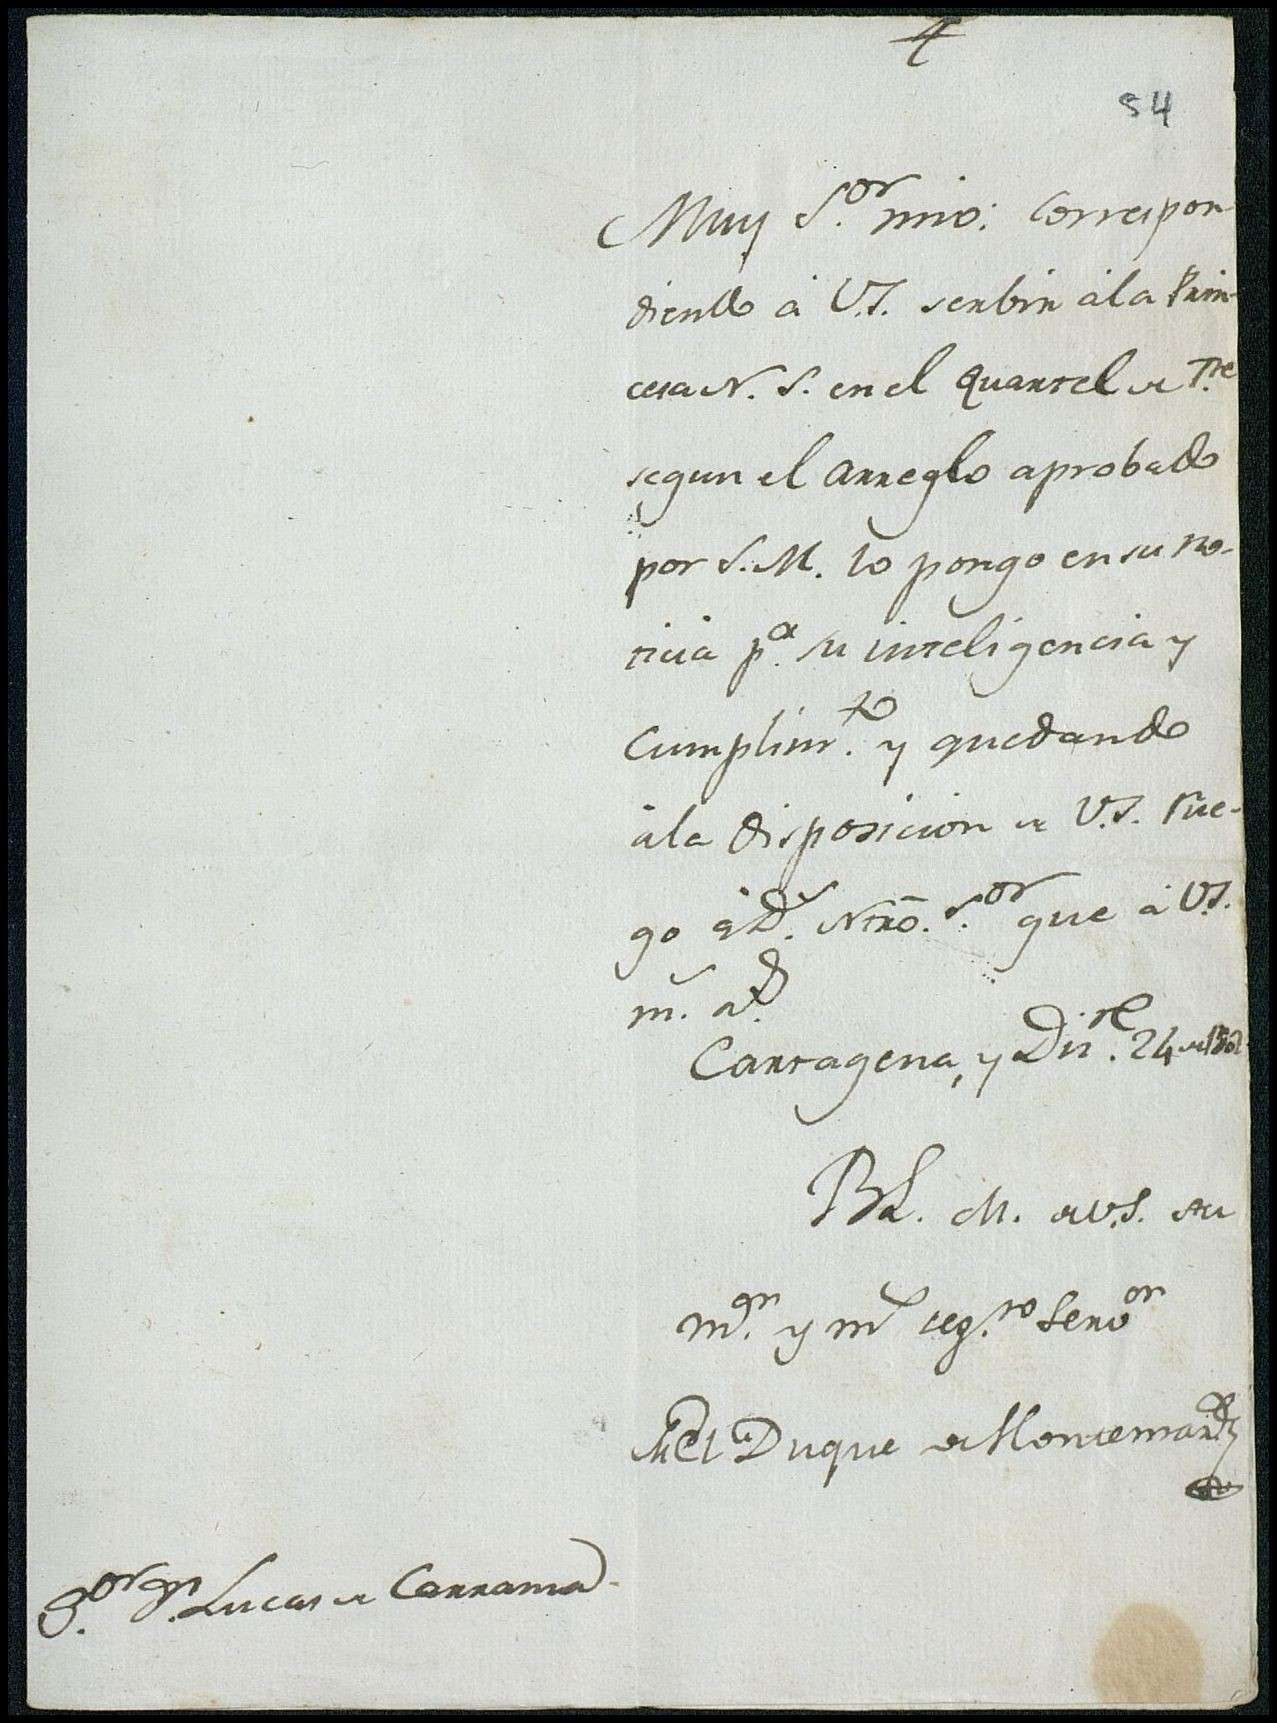 4
54
Muy S.or mio: Correspon-
diendo á V.S. serbir á la Prin-
cesa N. S. en el Quartel de T.re
segun el arreglo aprobado
por S. M. lo pongo en su no-
ticia p.a su inteligencia y
Cumplim.to y quedando
á la disposicion de V.S. rue-
go á D.s Ntrõ. S.or que á V.S.
m.s a.s
Cartagena, y Diz.re 24 de 1802
B L. M. de V.S. su
m.s seg.ro Serv.or
El Duque de Montemar
S.or D.n Lucas de Carranza